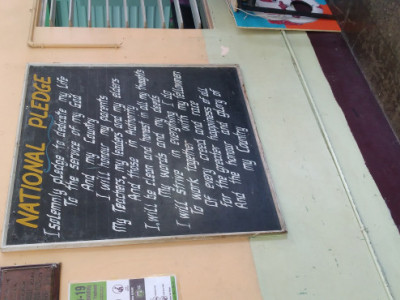 NATIONAL PLEDGE
I solemnly pledge to dedicate my life
To the service of my God
And my Country
I will honour my parents
My Teachers, my leaders and my elders
And those in Authority
I will be clean and honest in all my thoughts
My words and my deeds
I will strive in everything I do
To work together with my fellowmen
Of every creed and race
For the greater happiness of all
And the honour and glory of
my Country
-19